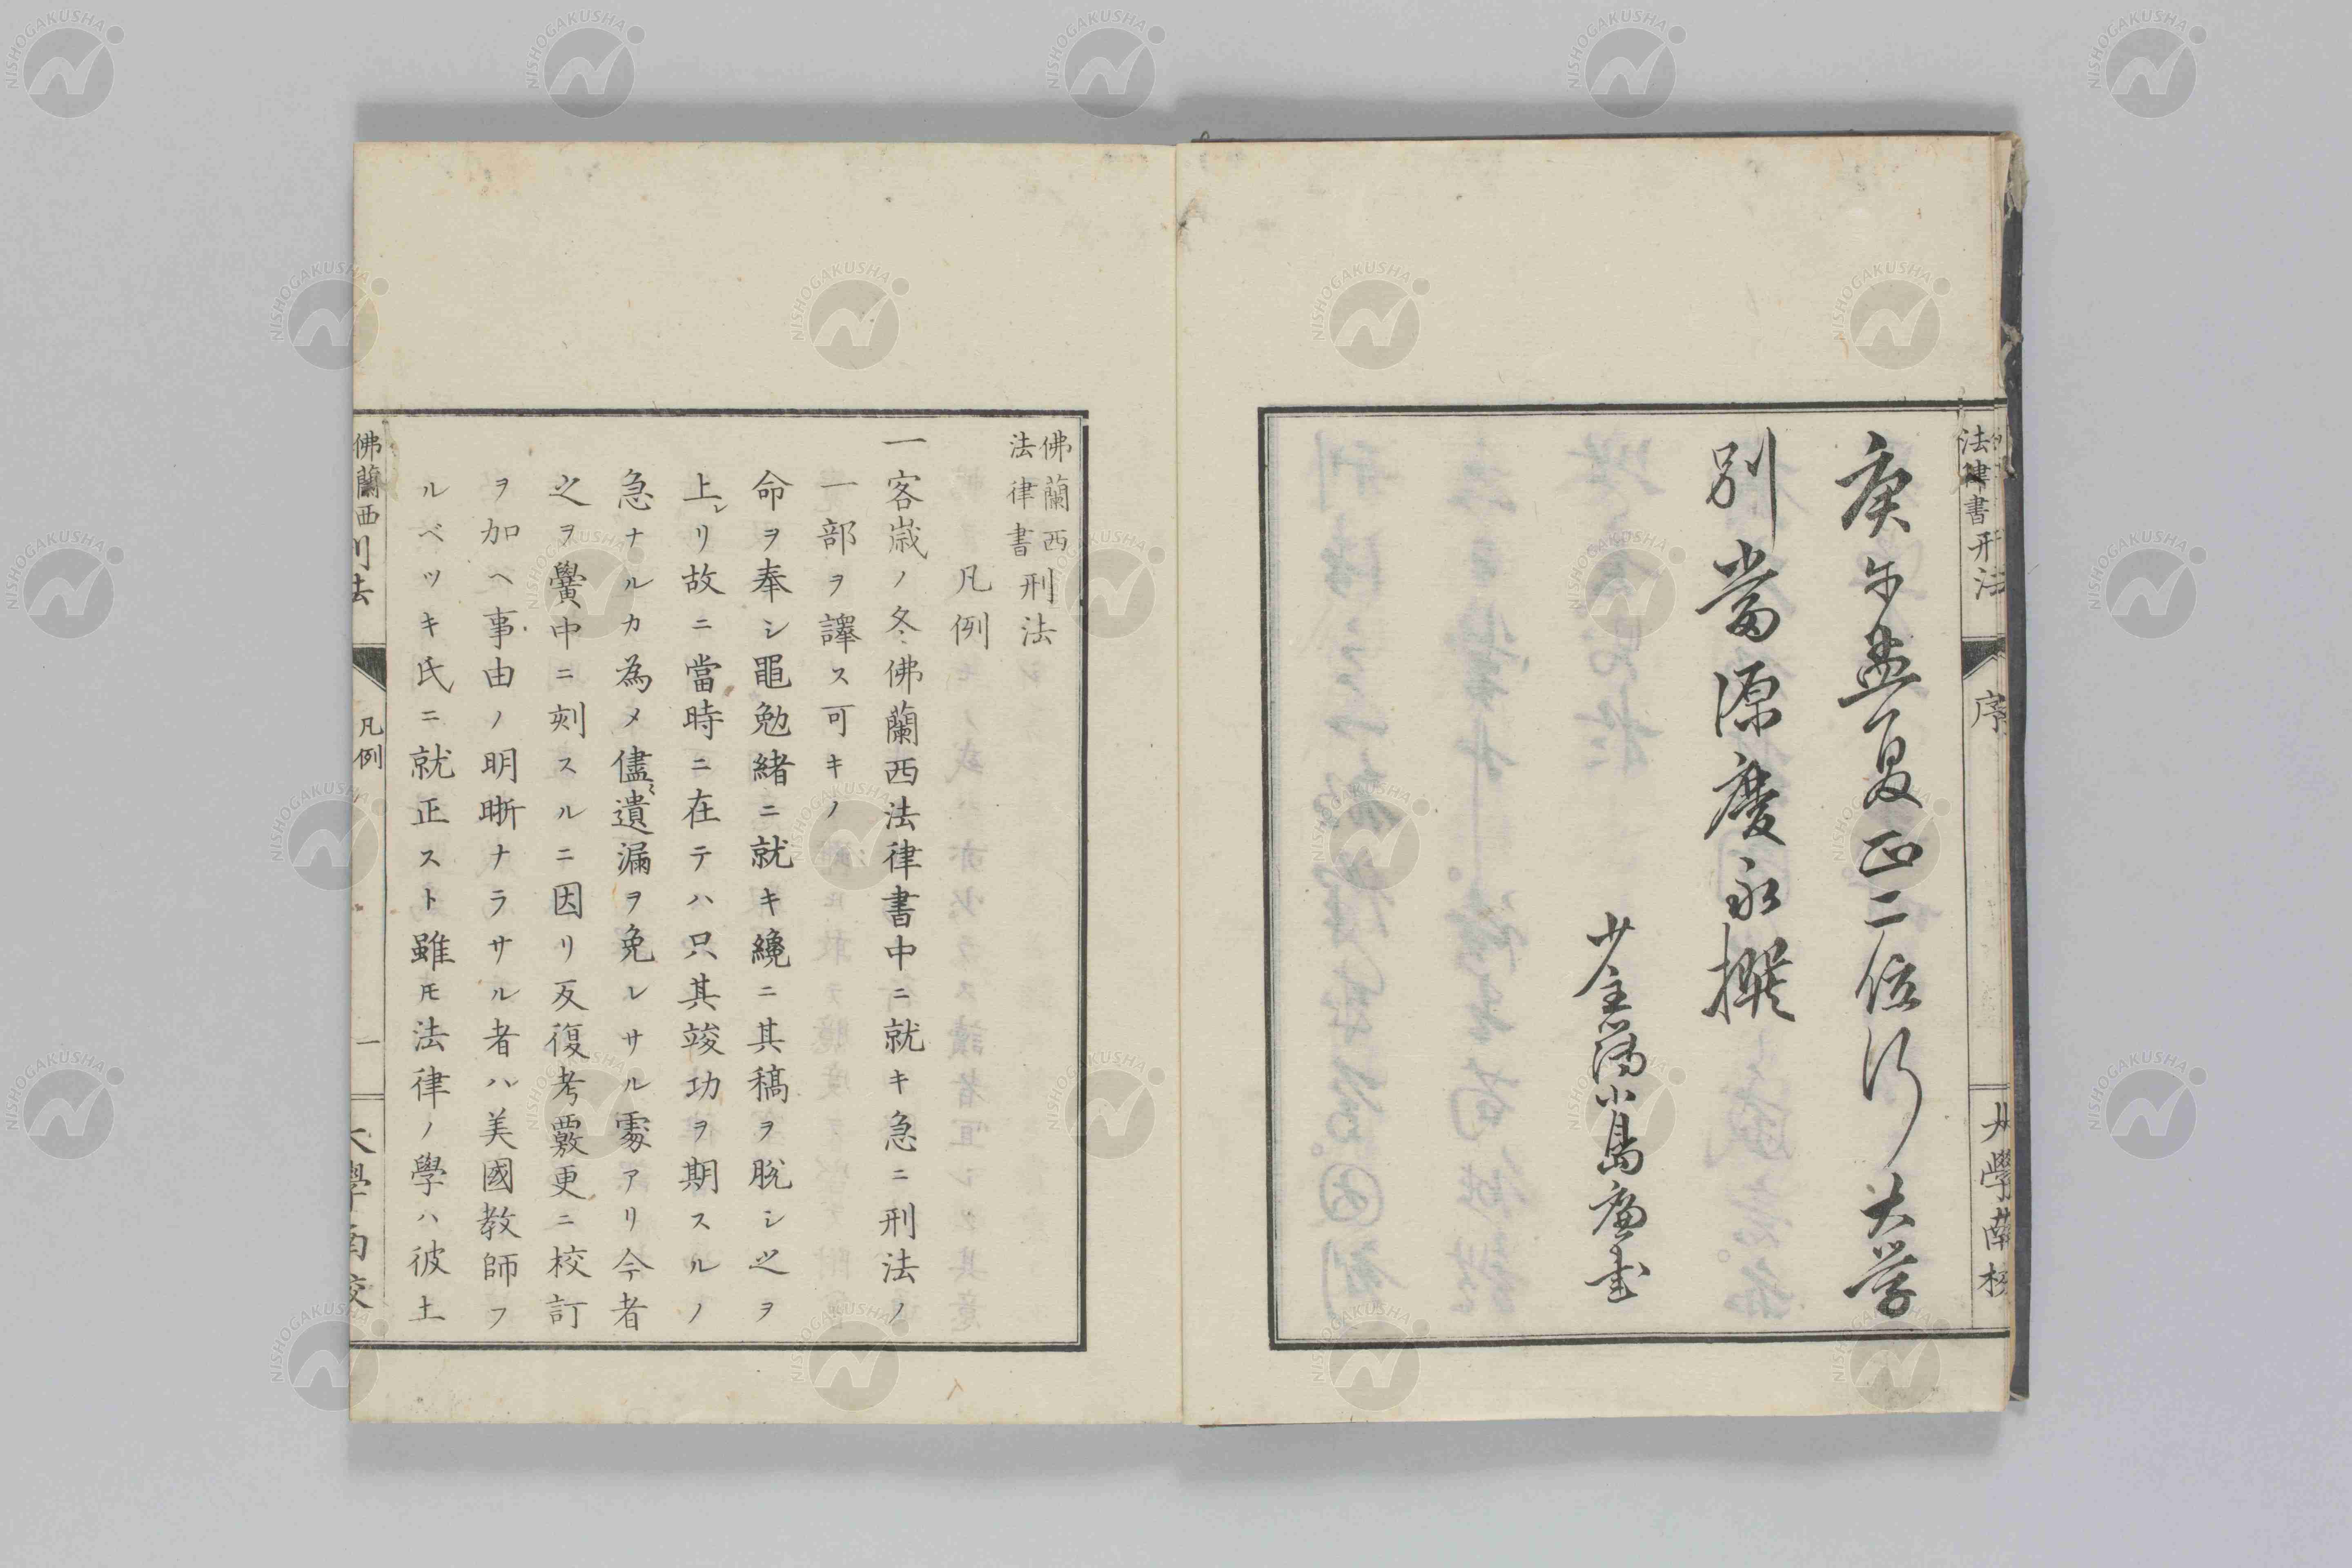 庚午孟夏正二位行大学
別当源慶永撰
小島
法律書刑法
序
大學南校
佛蘭西
法律書
刑法
凡例
一客歳ノ冬佛蘭西法律書中ニ就キ急ニ刑法ノ
一部ヲ譯ス可キノ
命ヲ奉シ黽勉緒ニ就キ纔ニ其稿ヲ脱シ之ヲ
上レリ故ニ當時ニ在テハ只其竣功ヲ期スルノ
急ナルカ為メ儘〻遺漏ヲ免レサル處アリ今者
之ヲ黌中ニ刻スルニ因リ反復考覈更ニ校訂
ヲ加ヘ事由ノ明晣ナラサル者ハ美國教師フ
ルベツキ氏ニ就正スト雖𪜈法律ノ學ハ彼土
佛蘭西刑法
凡例
一
大學南校
NISHOGAKUSHA